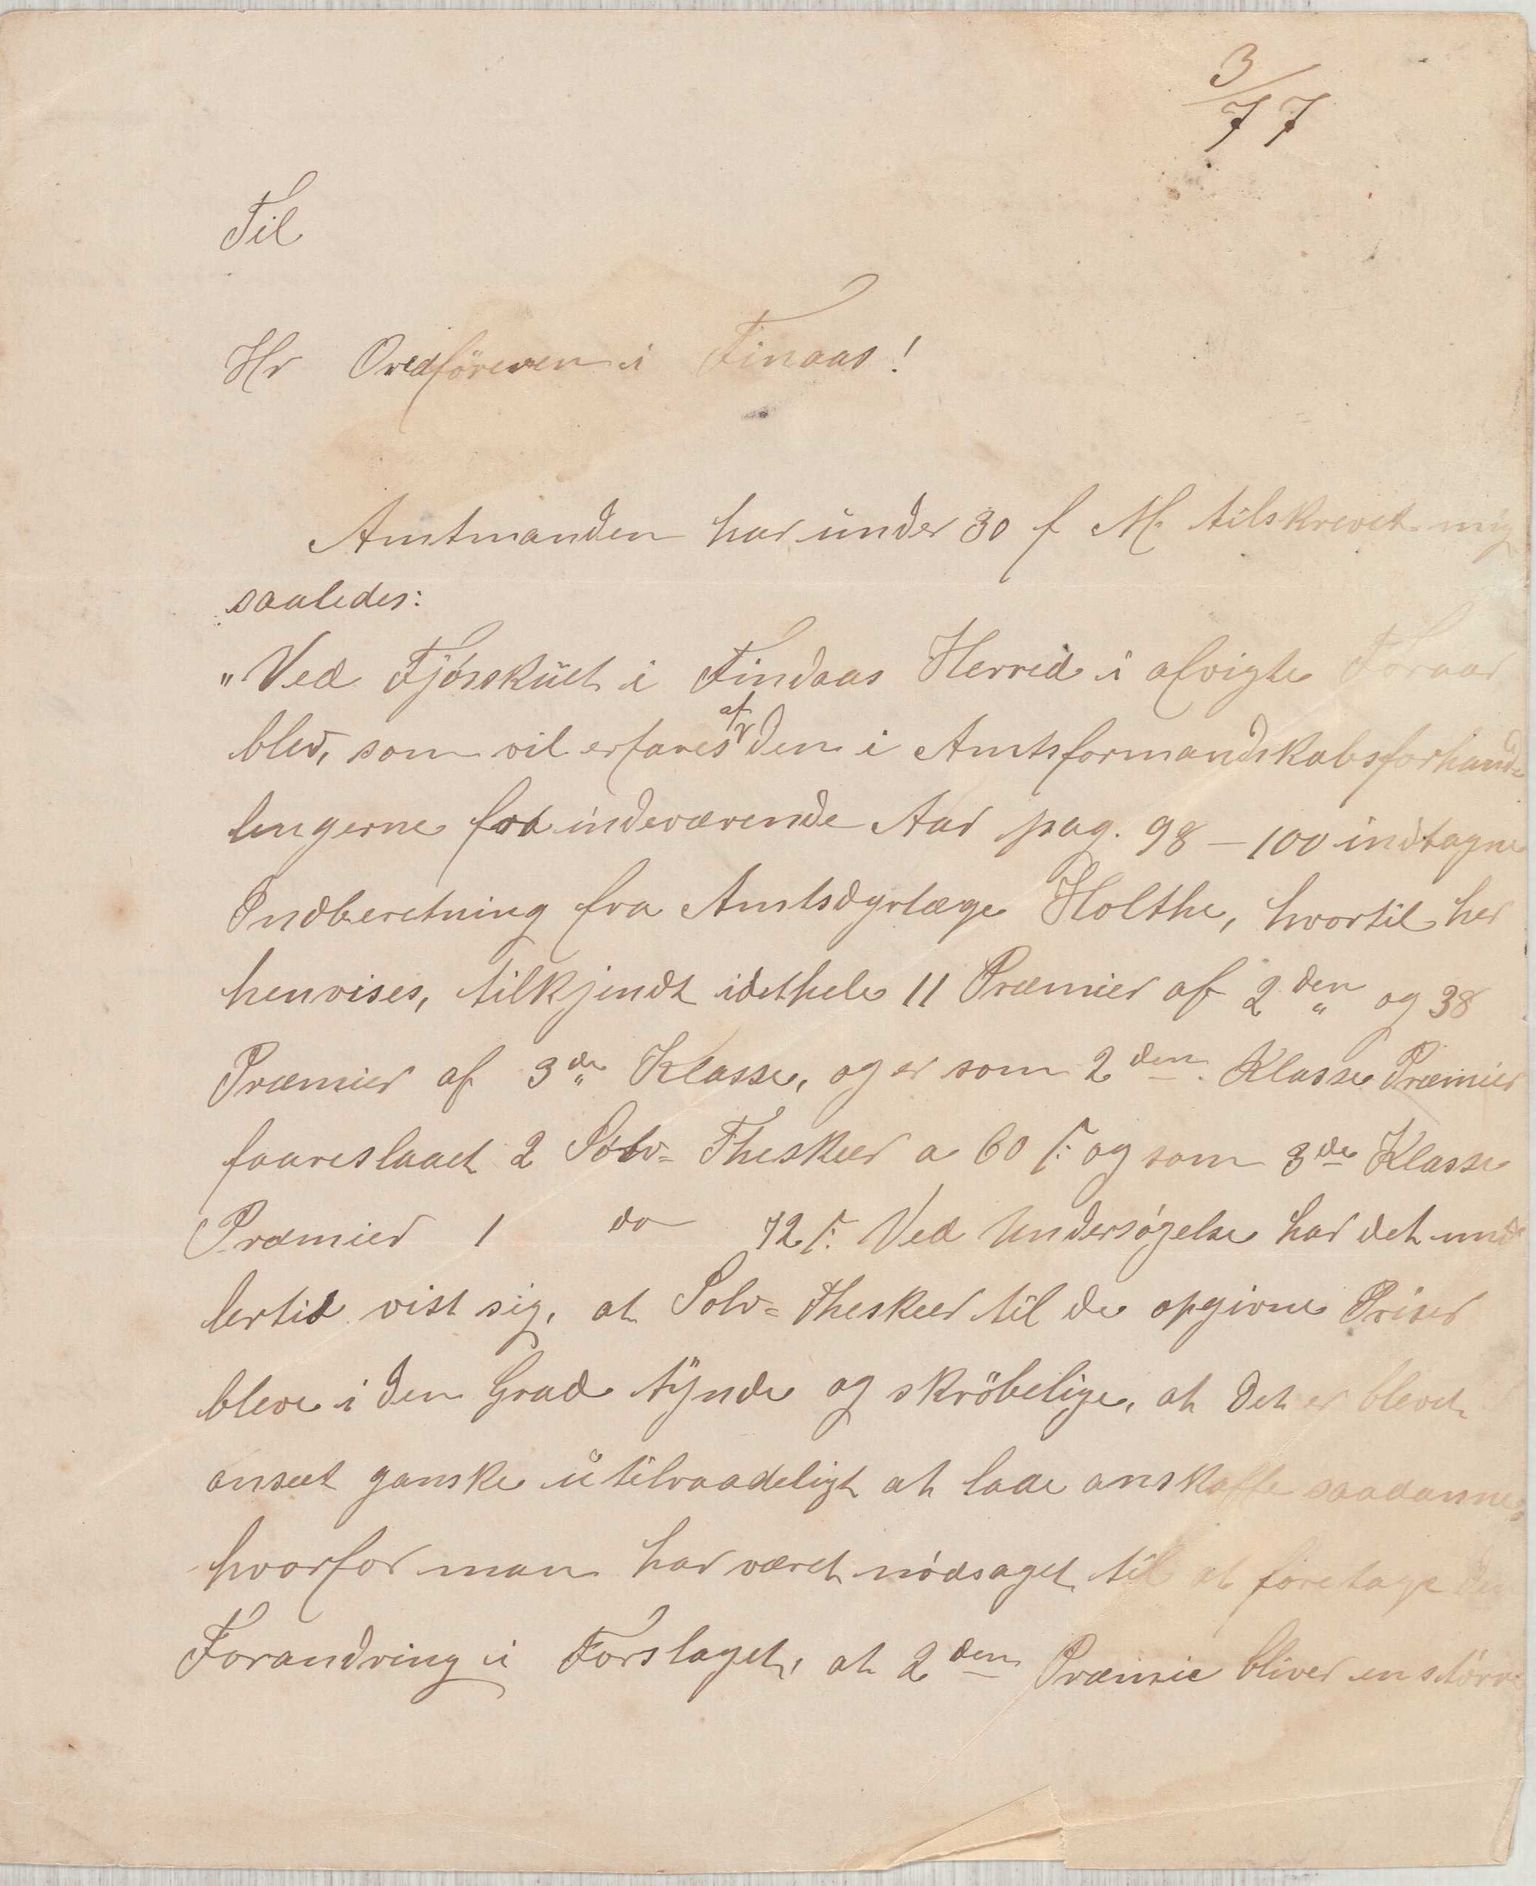 3/77
Til
Hr Ordföreren i Finaas!
Amtmanden har under 30 f M. tilskrevet mig
saaledes:
"Ved Fjösskuet i Findaas Herred i afvigte Foraar
blev, som vil erfares af den i Amtsformandskabsforhand-
lingerne for indeværende Aar pag. 98 – 100 indtagne
Indberetning fra Amtsdyrlæge Holthe, hvortil her
henvises, tilkjendt idethele 11 Præmier af 2den og 38
Præmier af 3de Klasse, og er som 2den Klasse Præmier
foareslaaet 2 Sölv- Theskeer a 60 s: og som 3de Klasse
Præmier 1 do 72 s: Ved Undersøgelse har det imid
lertid vist sig, at Solv- Theskeer til de opgivne Priser
bleve i den Grad tÿnde og skröbelige, at det er blevet
anseet ganske utilraadeligt at lade anskaffe saadanne,
hvorfor man har været nödsaget til at foretage den
Forandring i Forslaget, at 2den Præmie bliver en större